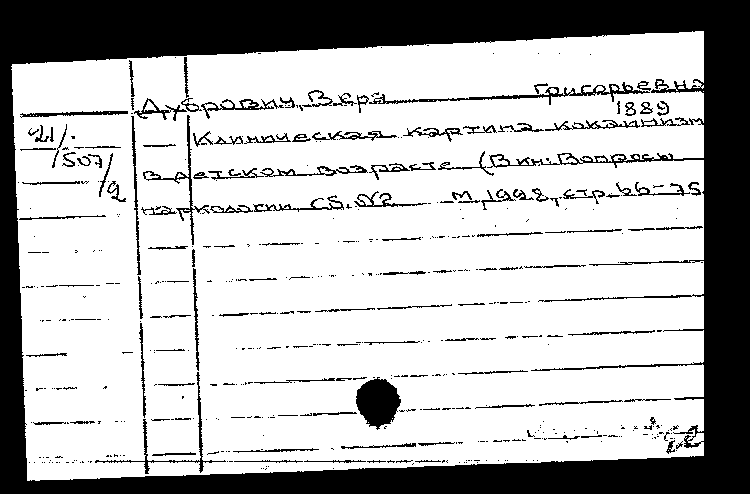 Дубрович, Вера Григорьевна
1889
21/.
/507/
/2
Клиническая картина кокаинизм
в детском возрасте (В кн: Вопросы
наркологии, Сб. №2 М, 1928, стр. 66-75